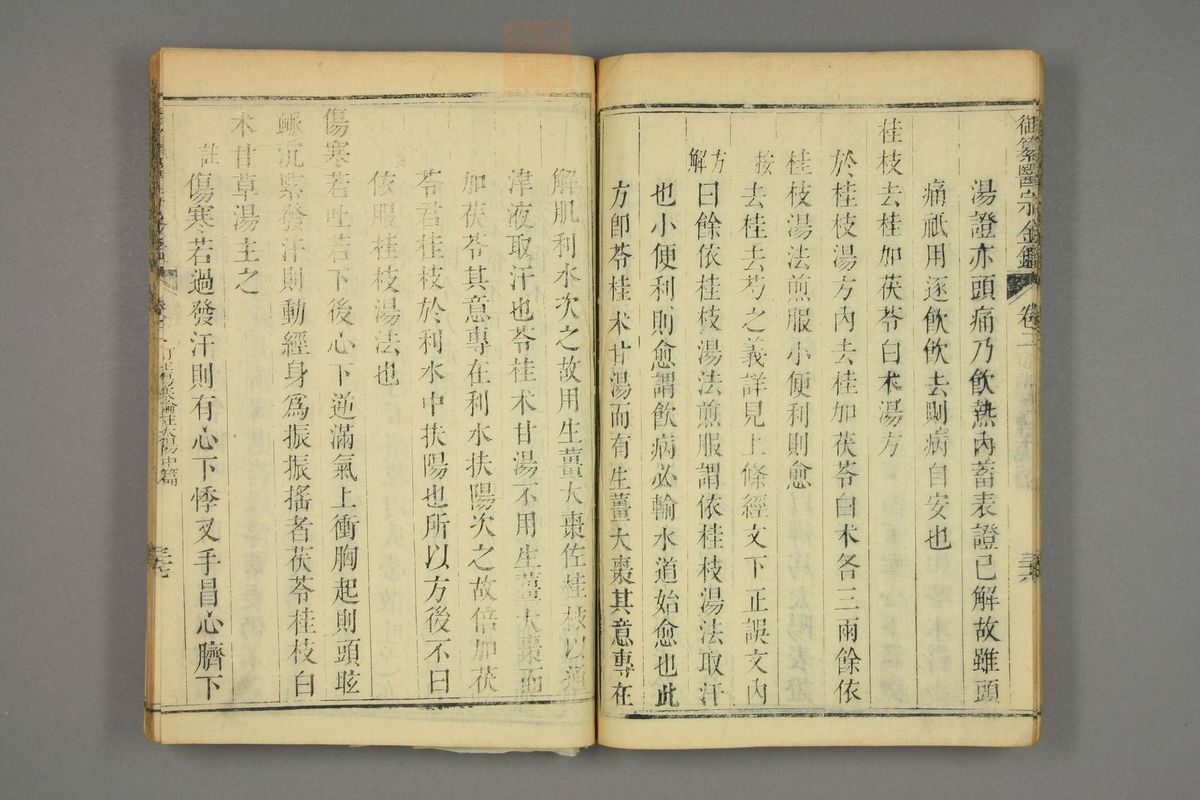 御纂醫宗金鑑 卷二 三六
湯證亦頭痛乃飲熱內蓄表證已解故雖頭
痛祇用逐飲飲去則病自安也
桂枝去桂加茯苓白术湯方
於桂枝湯方內去桂加茯苓白术各三兩餘依
桂枝湯法煎服小便利則愈
按去桂去芍之義詳見上條經文下正誤文內
方解曰餘依桂枝湯法煎服謂依桂枝湯法取汗
也小便利則愈謂飲病必輸水道始愈也此
方卽苓桂术甘湯而有生薑大棗其意專在
解肌利水次之故用生薑大棗佐桂枝以通
津液取汗也苓桂术甘湯不用生薑大棗而
加茯苓其意專在利水扶陽次之故倍加茯
苓君桂枝於利水中扶陽也所以方後不曰
依服桂枝湯法也
傷寒若吐若下後心下逆滿氣上衝胸起則頭眩
脈沉緊發汗則動經身爲振振搖者茯苓桂枝白
术甘草湯主之
註傷寒若過發汗則有心下悸叉手冒心臍下
卷二 訂正傷寒論註太陽中篇 三七